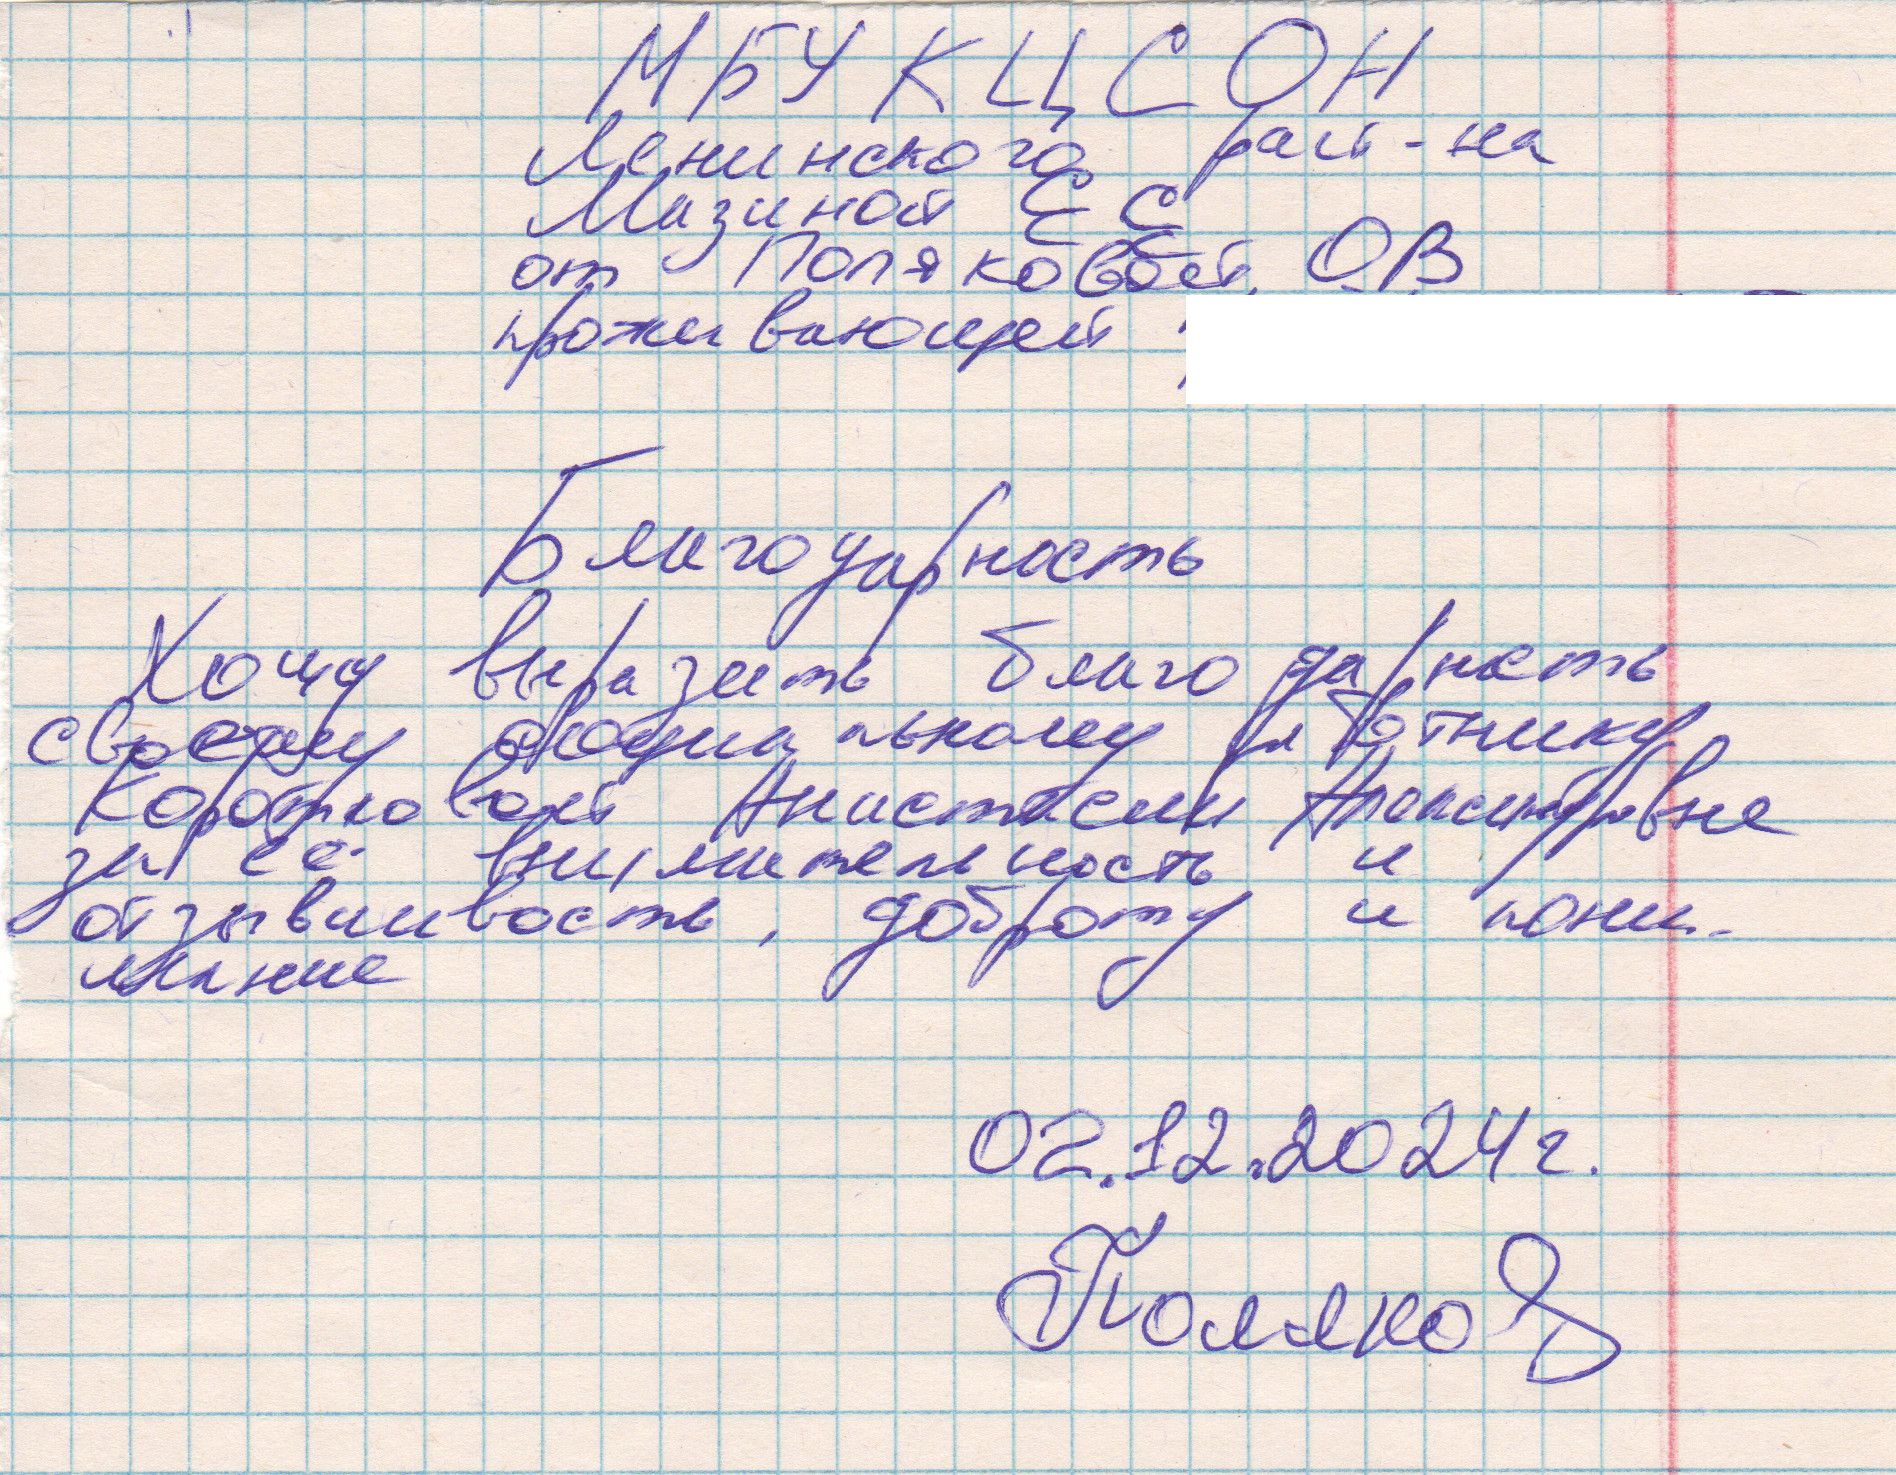 МБУ КЦСОН
Ленинского рай-на
Мазиной Е С
от Поляковой О.В
проживающей
Благодарность
Хочу выразить благодарность
своему социальному работнику
Коротковой Анастасии Александровне
за её внимательность и
отзывчивость, доброту и пони-
мание
02.12.2024г.
Поляков